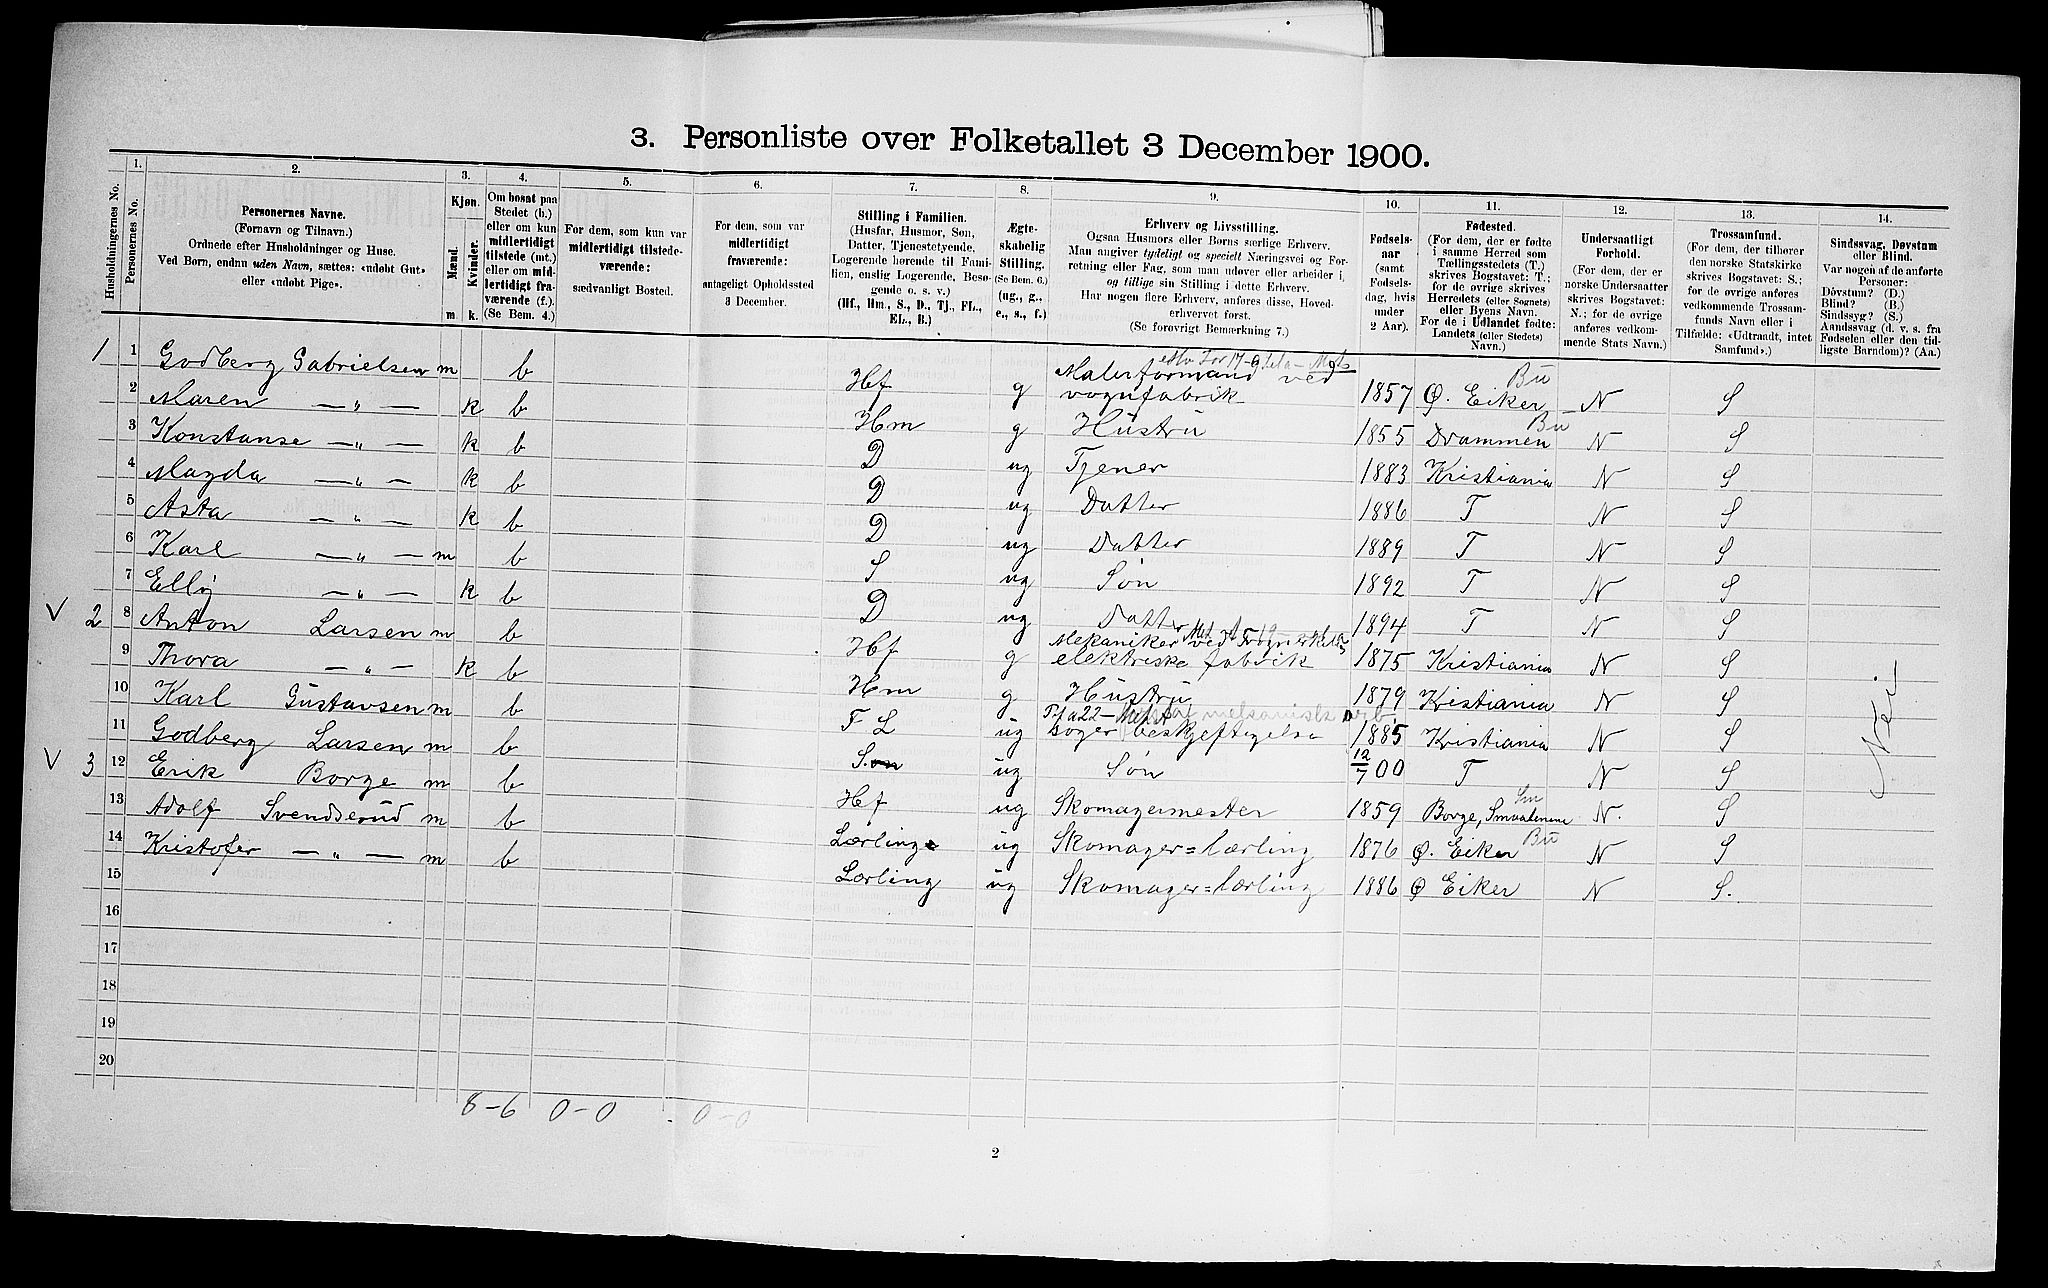 3. Personliste over Folketallet 3 December 1900.
1. 2. 3. 4. 5. 6. 7. 8. 9. 10. 11. 12. 13. 14.
Husholdningernes No.
Personernes No.
Personernes Navne.
(Fornavn og Tilnavn.)
Ordnede efter Husholdninger og Huse.
Ved Børn, endnu uden Navn, sættes: «udøbt Gut»
eller «udøbt Pige».
Kjøn.
Mænd.
Kvinder.
m. k.
Om bosat paa
Stedet (b.)
eller om kun
midlertidigt
tilstede (mt.)
eller om mid-
lertidigt fra-
værende (f.).
(Se Bem. 4.)
For dem, som kun var
midlertidigt tilstede-
værende:
sædvanligt Bosted.
For dem, som var
midlertidigt
fraværende:
antageligt Opholdssted
3 December.
Stilling i Familien.
(Husfar, Husmor, Søn,
Datter, Tjenestetyende,
Logerende hørende til Fami-
lien, enslig Logerende, Besø-
gende o. s. v.)
(Hf., Hm., S., D., Tj., FL.,
EL., B.)
Ægte-
skabelig
Stilling.
(Se Bem. 6.)
(ug., g.,
e., s., f.)
Erhverv og Livsstilling.
Ogsaa Husmors eller Børns særlige Erhverv.
Man angiver tydeligt og specielt Næringsvei og For-
retning eller Fag, som man udøver eller arbeider i,
og tillige sin Stilling i dette Erhverv.
Har nogen flere Erhverv, anføres disse, Hoved-
erhvervet først.
(Se forøvrigt Bemærkning 7.)
Fødsels-
aar
(samt
Fødsels-
dag, hvis
under
2 Aar).
Fødested.
(For dem, der er fødte
i samme Herred som
Tællingsstedets (T.)
skrives Bogstavet: T.;
for de øvrige skrives
Herredets (eller Sognets)
eller Byens Navn.
For de i Udlandet fødte:
Landets (eller Stedets)
Navn.)
Undersaatligt
Forhold.
(For dem, der er
norske Undersaatter
skrives Bogstavet:
N.; for de øvrige
anføres vedkom-
mende Stats Navn.)
Trossamfund.
(For dem, der tilhører
den norske Statskirke
skrives Bogstavet: S.;
for de øvrige anføres
vedkommende Trossam-
funds Navn eller i
Tilfælde: «Udtraadt, intet
Samfund».)
Sindssvag, Døvstum
eller Blind.
Var nogen af de anførte
Personer:
Døvstum? (D.)
Blind? (B.)
Sindssyg? (S.)
Aandssvag (d. v. s. fra
Fødselen eller den tid-
ligste Barndom)? (Aa.)
1 1 Godberg Gabrielsen m b Hf g Malerformand ved vognfabrik 1857 Ø. Eiker Bu N S
2 Maren — „ — k b Hm g Hustru 1855 Drammen Bu N S
3 Konstanse — „ — k b D ug Tjener 1883 Kristiania N S
4 Magda — „ — k b D ug Datter 1886 T N S
5 Asta — „ — k b D ug Datter 1889 T N S
6 Karl — „ — m b S ug Søn 1892 T N S
7 Elly — „ — k b D ug Datter 1894 T N S
V 2 8 Anton Larsen m b Hf g Mekaniker ved elektriske fabrik 1875 Kristiania N S
9 Thora — „ — k b Hm g Hustru 1879 Kristiania N S
10 Karl Gustavsen m b F L ug søger beskjeftigelse 1885 Kristiania N S
11 Godberg Larsen m b Søn ug Søn 12/7 00 T N S
V 3 12 Erik Borge m b Hf ug Skomagermester 1859 Borge, Smaalenene Sm N. S
13 Adolf Svendserud m b Lærling ug Skomager=lærling 1876 Ø. Eiker Bu N S
14 Kristofer — „ — m b Lærling ug Skomager=lærling 1886 Ø Eiker N S.
15
16
17
18
19
20
Nei
8–6 0–0 0–0
2